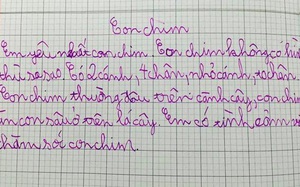 Con chim
Em yêu nhất con chim. Con chim không có
thì sao. Có 2 cánh, 4 chân, nhỏ cánh, to chân
Con chim thường đậu trên cành cây, con chim
ăn con sâu ở trên lá cây. Em có
chăm sóc con chim.